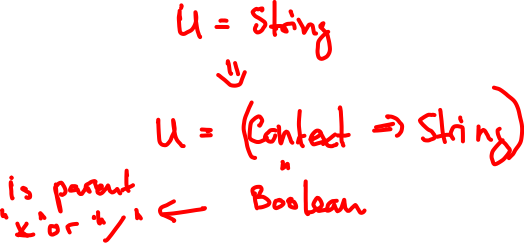 U = String
⇓
U = (Context => String)
"
Boolean
is parent
"x" or "/" ←